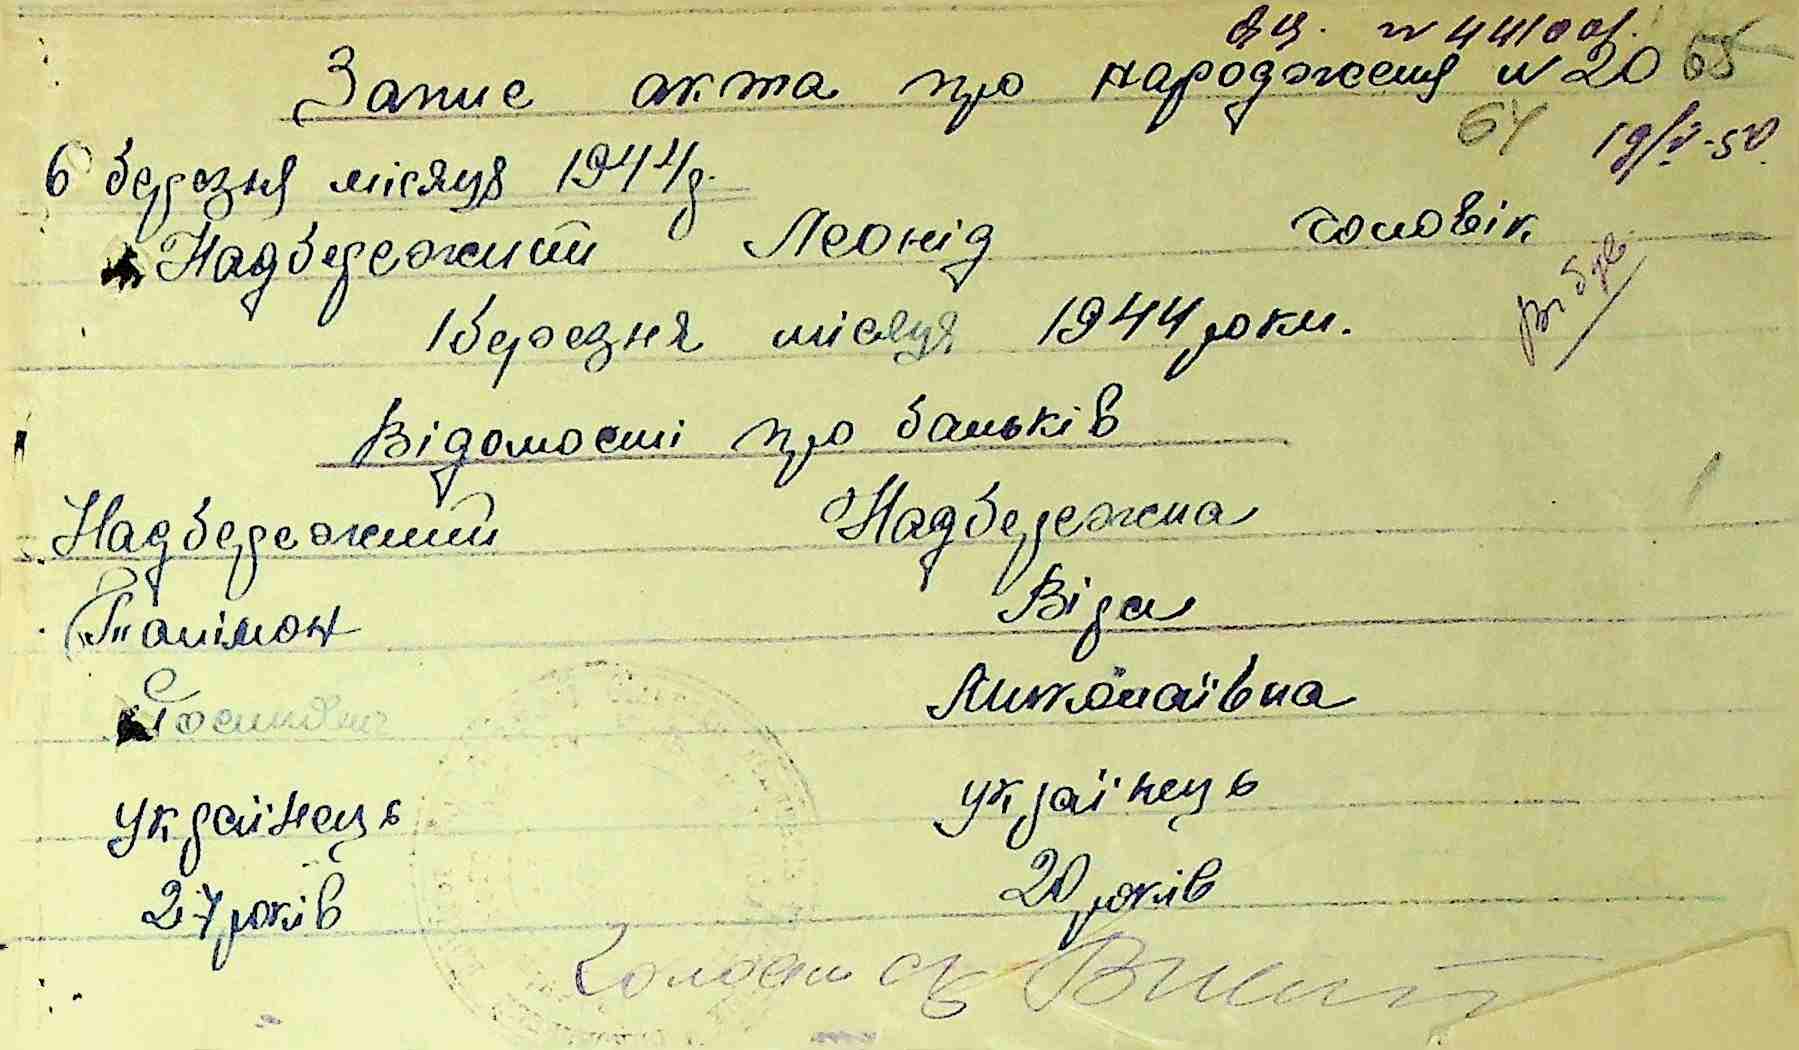 19/V-50
Запис акта про народження № 20 65
64
6 березня місяця 1944 р.
Надбережний Леонід чоловік
1 березня місяця 1944 року.
Відомості про батьків
Надбережний Надбережна
Панімон Віра
Миколаївна
українець українець
27 років 20 років
Голова с/р